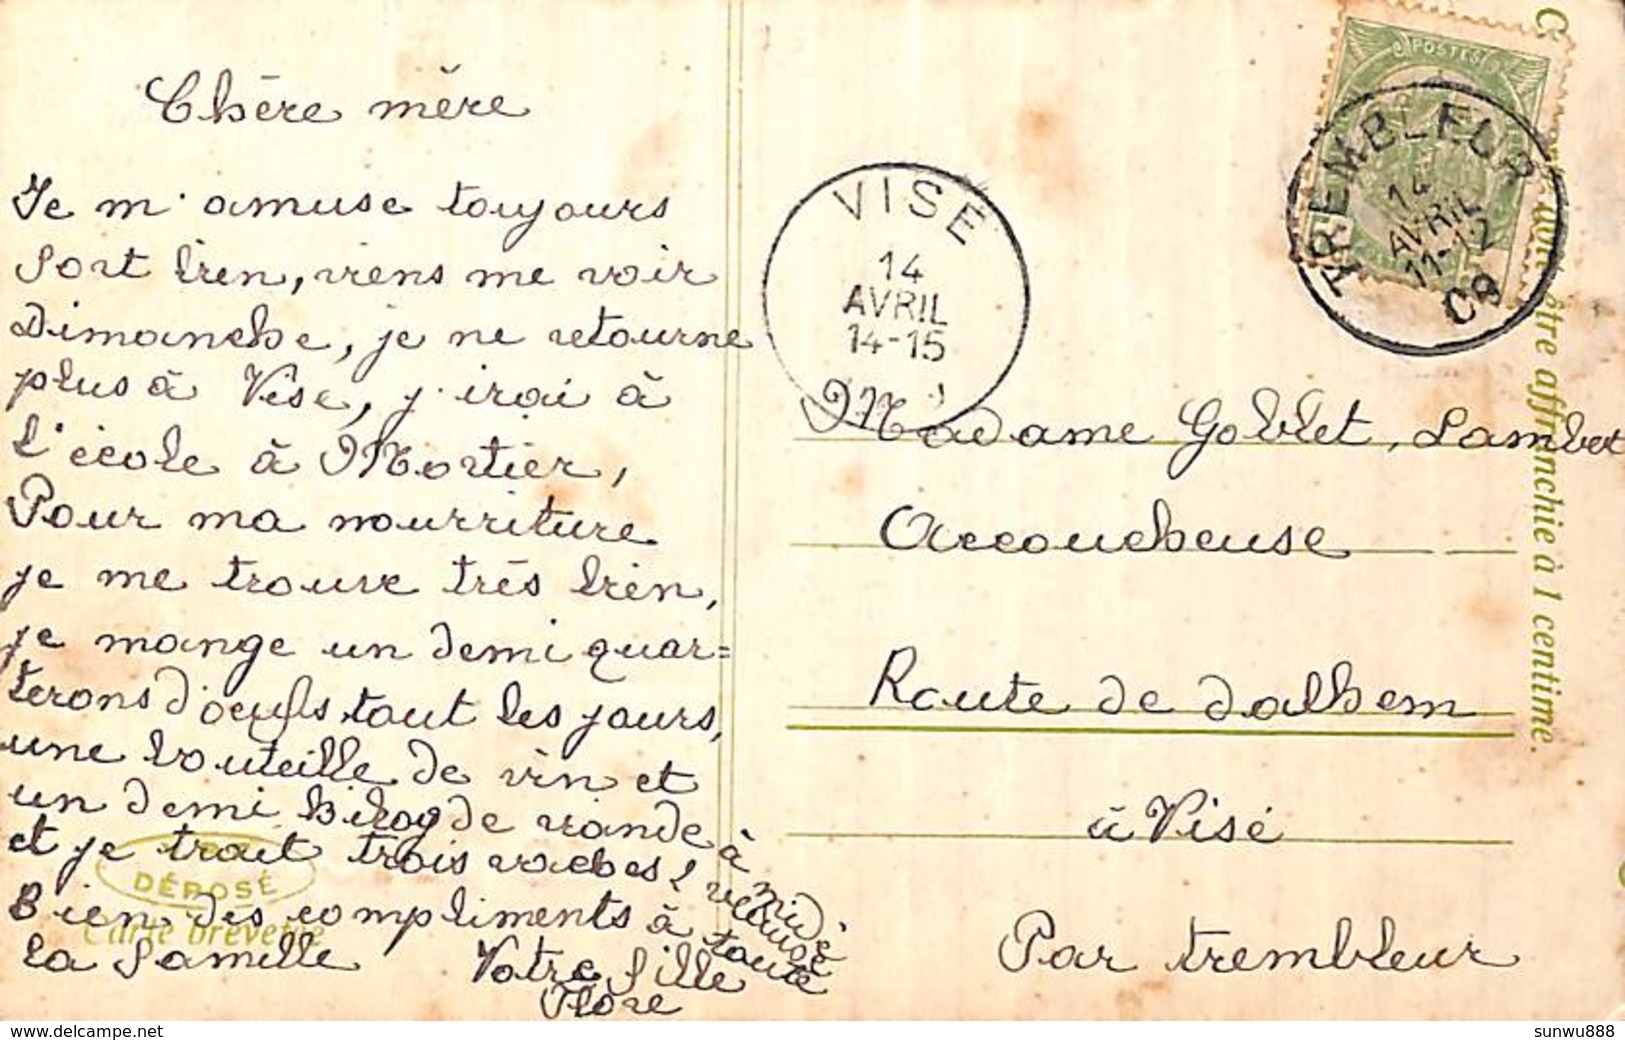 Chère mère
Je m'amuse toujours
fort bien, viens me voir
Dimanche, je ne retourne
plus à Vise, j'irai à
l'école à Mortier,
Pour ma nourriture
je me trouve très bien,
je mange un demi quar=
terons d'oeufs tout les jours,
une bouteille de vin et
un demi kilog de viande à midi
et je trait trois vaches
Bien des compliments à toute
la famille Votre fille
Flore
DÉPOSÉ
Carte brevetée
VISE
14
AVRIL
14-15
POSTES
TREMBLEUR
14
AVRIL
11-12
09
être affranchie à 1 centime.
Madame Goblet, Lambert
Accoucheuse
Route de dalhem
à Visé
Par trembleur
www.delcampe.net
sunwu888